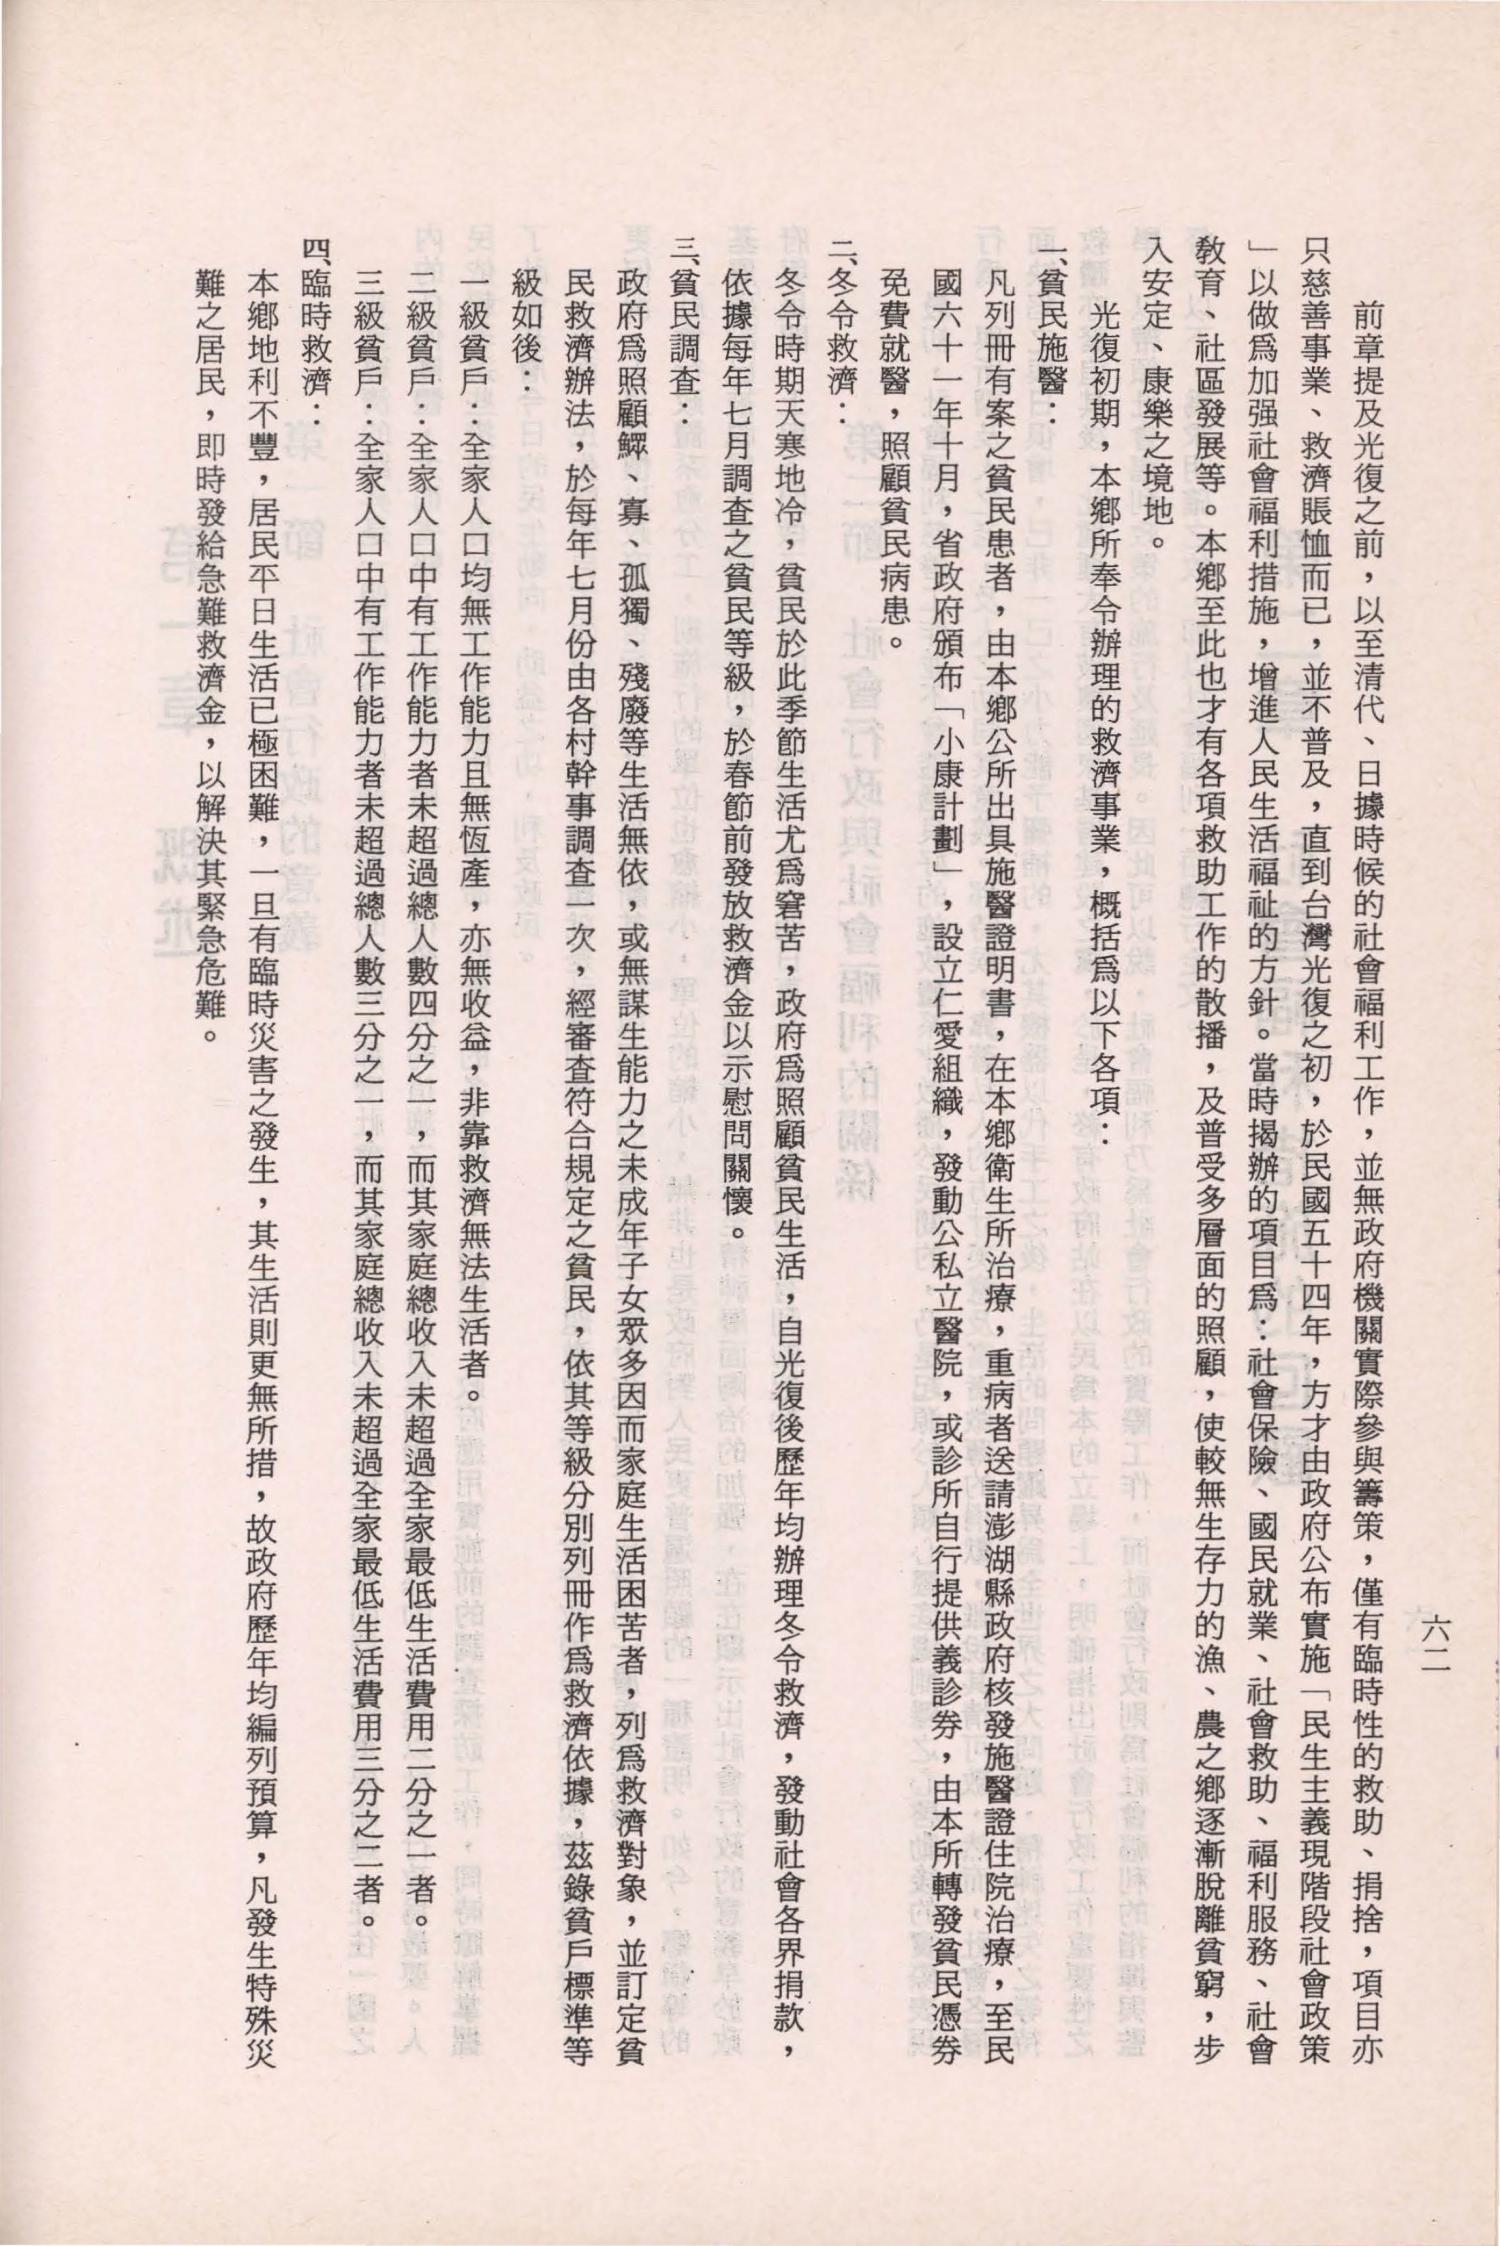 六二
前章提及光復之前，以至清代、日據時候的社會福利工作，並無政府機關實際參與籌策，僅有臨時性的救助、捐捨，項目亦
只慈善事業、救濟賬恤而已，並不普及，直到台灣光復之初，於民國五十四年，方才由政府公布實施「民生主義現階段社會政策
」以做爲加强社會福利措施，增進人民生活福祉的方針。當時揭辦的項目爲：社會保險、國民就業、社會救助、福利服務、社會
教育、社區發展等。本鄉至此也才有各項救助工作的散播，及普受多層面的照顧，使較無生存力的漁、農之鄉逐漸脫離貧窮，步
入安定、康樂之境地。
光復初期，本鄉所奉令辦理的救濟事業，概括爲以下各項：
一、貧民施醫：
凡列冊有案之貧民患者，由本鄉公所出具施醫證明書，在本鄉衛生所治療，重病者送請澎湖縣政府核發施醫證住院治療，至民
國六十一年十月，省政府頒布「小康計劃」，設立仁愛組織，發動公私立醫院，或診所自行提供義診券，由本所轉發貧民憑券
免費就醫，照顧貧民病患。
二、冬令救濟：
冬令時期天寒地冷，貧民於此季節生活尤爲窘苦，政府爲照顧貧民生活，自光復後歷年均辦理冬令救濟，發動社會各界捐款，
依據每年七月調查之貧民等級，於春節前發放救濟金以示慰問關懷。
三、貧民調查：
政府爲照顧鰥、寡、孤獨、殘廢等生活無依，或無謀生能力之未成年子女眾多因而家庭生活困苦者，列爲救濟對象，並訂定貧
民救濟辦法，於每年七月份由各村幹事調查一次，經審查符合規定之貧民，依其等級分別列冊作爲救濟依據，茲錄貧戶標準等
級如後：
一級貧戶：全家人口均無工作能力且無恆產，亦無收益，非靠救濟無法生活者。
二級貧戶：全家人口中有工作能力者未超過總人數四分之一，而其家庭總收入未超過全家最低生活費用二分之一者。
三級貧戶：全家人口中有工作能力者未超過總人數三分之一，而其家庭總收入未超過全家最低生活費用三分之二者。
四、臨時救濟：
本鄉地利不豐，居民平日生活已極困難，一旦有臨時災害之發生，其生活則更無所措，故政府歷年均編列預算，凡發生特殊災
難之居民，即時發給急難救濟金，以解決其緊急危難。